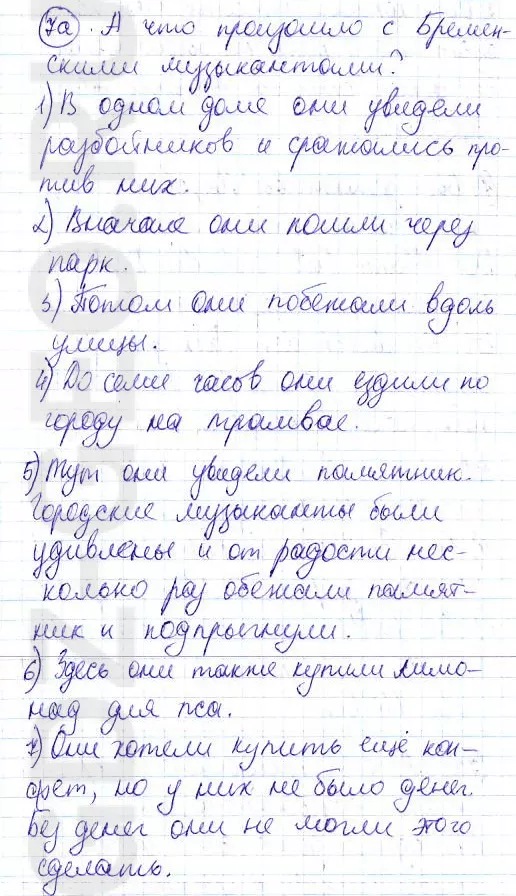 7а. А что произошло с Бремен-
скими музыкантами?
1) В одном доме они увидели
разбойников и сражались про-
тив них.
2) Вначале они пошли через
парк.
3) Потом они побежали вдоль
улицы.
4) До семи часов они ездили по
городу на трамвае.
5) Тут они увидели памятник.
Городские музыканты были
удивлены и от радости нес-
колько раз обежали памят-
ник и подпрыгнули.
6) Здесь они также купили лимо-
над для пса.
7) Они хотели купить ещё кон-
фет, но у них не было денег.
Без денег они не могли этого
сделать.